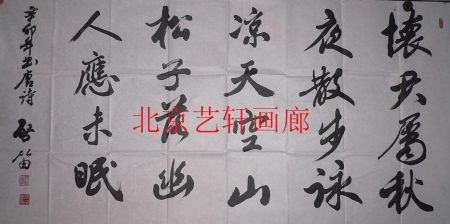 懷君屬秋
夜散步詠
凉天空山
松子落幽
人應未眠
辛卯年書唐詩
啓笛
北京艺轩画廊